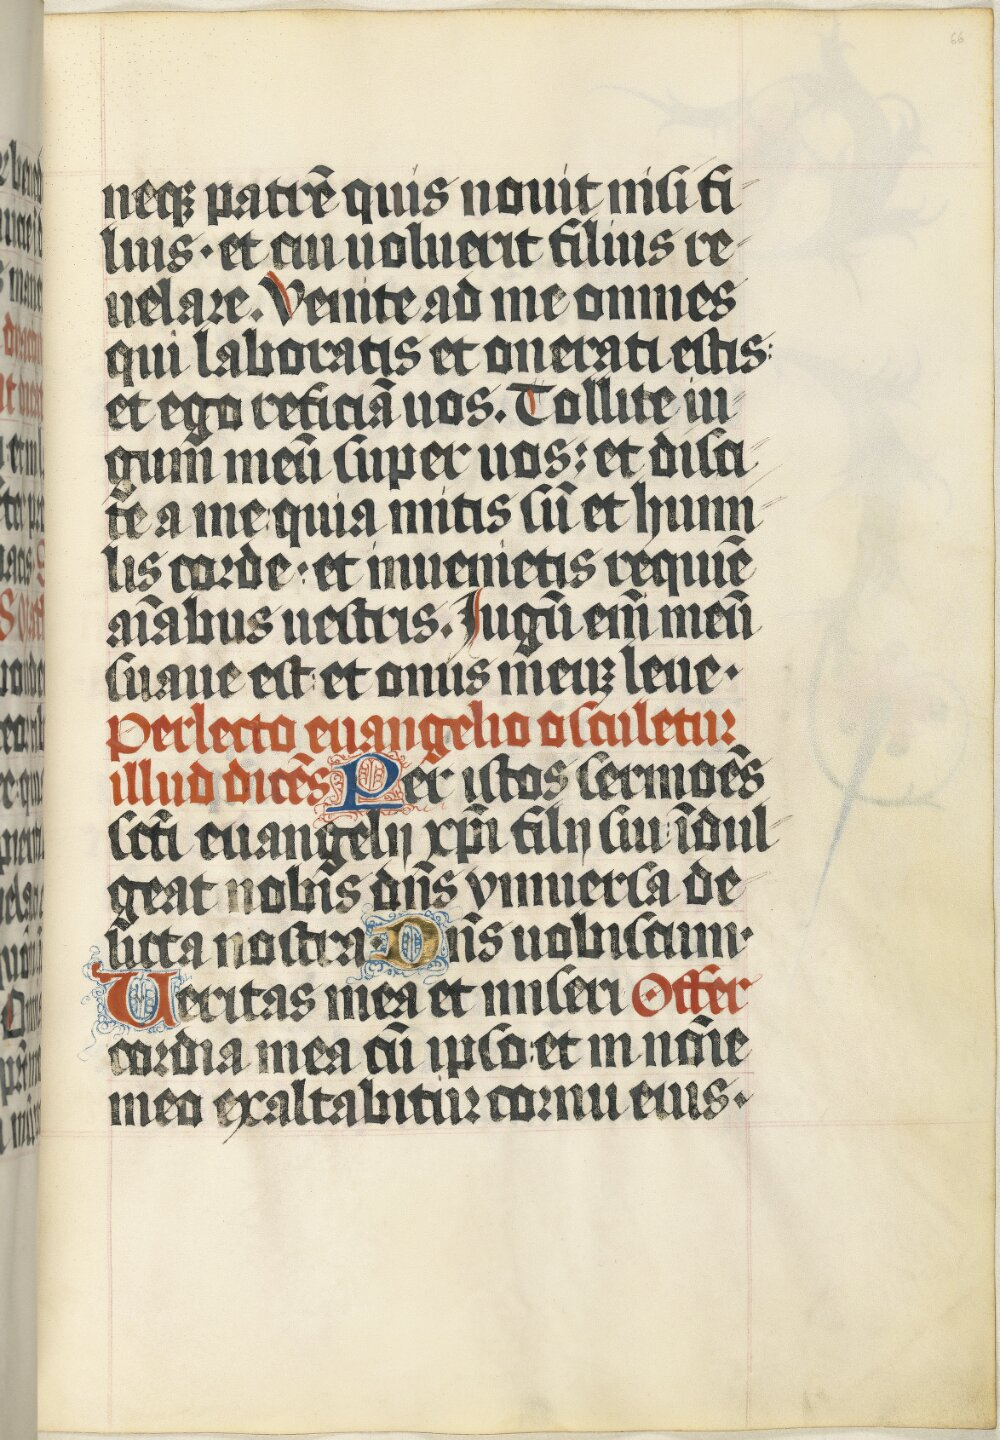 66
neqꝫ patrē quis nouit nisi fi-
lius · et cui uoluerit filius re-
uelare. Venite ad me omnes
qui laboratis et onerati estis:
et ego reficiā uos. Tollite iu-
gum meū super uos: et disci-
te a me quia mitis sū et humi-
lis corde: et inuenietis requiē
aīabus uestris. Jugū eīm meū
suaue est: et onus meuꝫ leue.
Perlecto euangelio osculetur
illud dicēs Per istos sermoēs
scti euangelij xpi filij sui īdul-
geat nobis dn̄s vniuersa de-
licta nostra. Dn̄s uobiscum.
Ueritas mea et miseri Offer
cordia mea cū ipso: et in noīe
meo exaltabitur cornu eius.